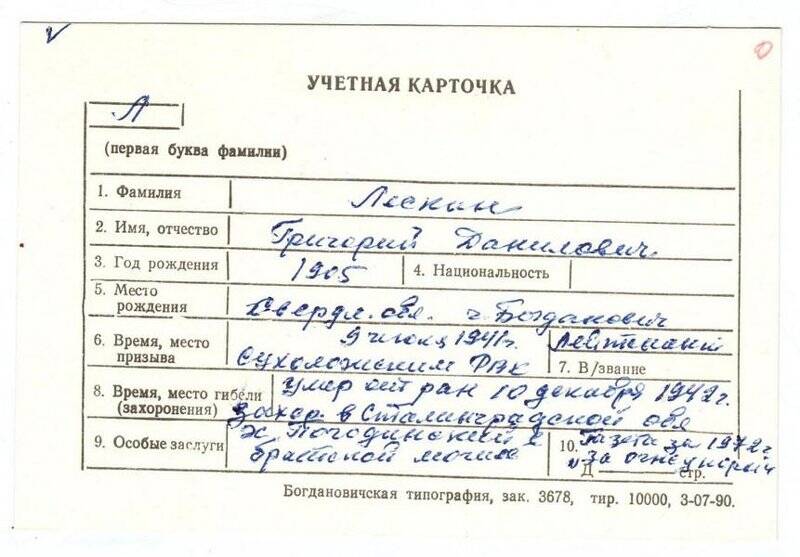 УЧЕТНАЯ КАРТОЧКА
Л
(первая буква фамилии)
1. Фамилия Лескин
2. Имя, отчество Григорий Данилович.
3. Год рождения 1905 4. Национальность
5. Место рождения Свердл. обл. г. Богданович
6. Время, место призыва 9 1941г. Сухоложским РВК
Лейтенант
7. В/звание
8. Время, место гибели (захоронения) умер от ран 10 декабря 1942г.
Захор. в Сталинградской обл
9. Особые заслуги х. Погодинский в
братской могиле
10. Газета за 1972г
за огнеупоры
Д стр.
Богдановичская типография, зак. 3678, тир. 10000, 3-07-90.